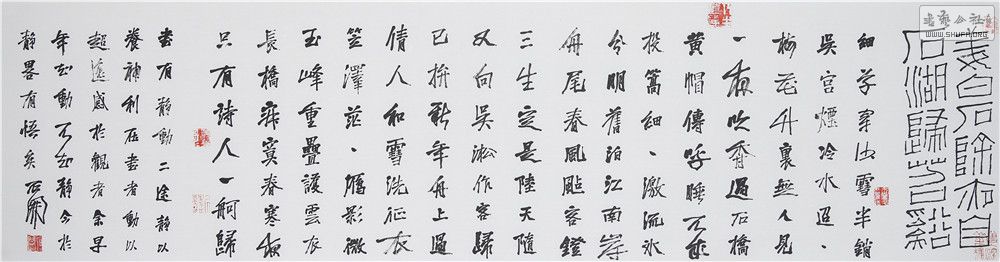 姜白石除夜自
石湖歸苕谿
細草穿沙雪半銷
吳宮煙冷水迢、
梅花竹裏無人見
一夜吹香過石橋
黄帽傳呼睡不成
投篙細、激流冰
分明舊泊江南岸
舟尾春風颭客鐙
三生定是陸天隨
又向吳淞作客歸
已拚新年舟上過
倩人和雪洗征衣
笠澤茫、雁影微
玉峰重疊護雲衣
長橋寂寞春寒夜
只有詩人一舸歸
書有靜動二途靜以
養神利在書者動以
超逸感於觀者余早
年知動不知靜今於
靜畧有悟矣石開
書藝公社
WWW.SHUFA.ORG